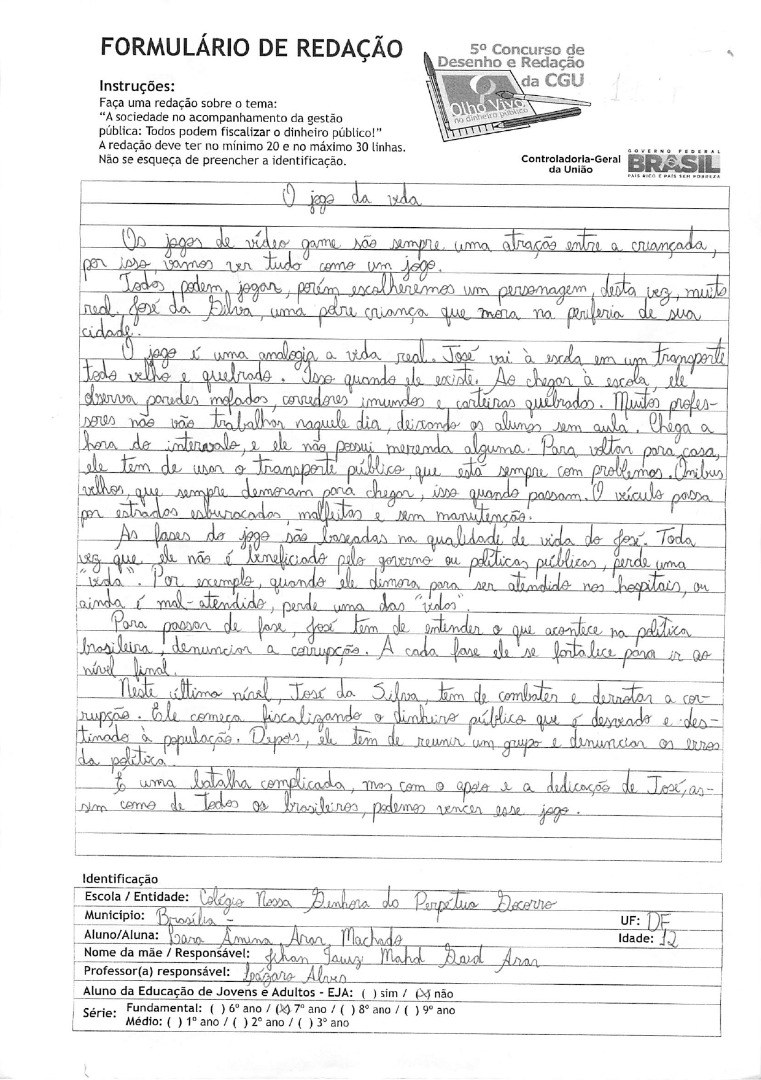 FORMULÁRIO DE REDAÇÃO
5º Concurso de
Desenho e Redação
da CGU
Olho Vivo
no dinheiro público
Instruções:
Faça uma redação sobre o tema:
"A sociedade no acompanhamento da gestão
pública: Todos podem fiscalizar o dinheiro público!"
A redação deve ter no mínimo 20 e no máximo 30 linhas.
Não se esqueça de preencher a identificação.
Controladoria-Geral
da União
GOVERNO FEDERAL
BRASIL
PAÍS RICO É PAÍS SEM POBREZA
O jogo da vida
Os jogos de vídeo game são sempre uma atração entre a criançada,
por isso, vamos ver tudo como um jogo.
Todos podem jogar, porém escolheremos um personagem, desta vez, muito
real. José da Silva, uma pobre criança que mora na periferia de sua
cidade.
O jogo é uma analogia a vida real. José vai à escola em um transporte
todo velho e quebrado. Isso quando ele existe. Ao chegar à escola, ele
observa paredes mofadas, corredores imundos e carteiras quebradas. Muitos profes-
sores não vão trabalhar naquele dia, deixando os alunos sem aula. Chega a
hora do intervalo, e ele não possui merenda alguma. Para voltar para casa,
ele tem de usar o transporte público, que está sempre com problemas. Ônibus
velhos, que sempre demoram para chegar, isso quando passam. O veículo passa
por estradas esburacadas, malfeitas e sem manutenção.
As fases do jogo são baseadas na qualidade de vida do José. Toda
vez que ele não é beneficiado pelo governo ou políticas públicas, perde uma
"vida". Por exemplo, quando ele demora para ser atendido nos hospitais, ou
ainda é mal-atendido, perde uma das "vidas".
Para passar de fase, José tem de entender o que acontece na política
brasileira, denunciar a corrupção. A cada fase ele se fortalice para ir ao
nível final.
Neste último nível, José da Silva, tem de combater e derrotar a cor-
rupção. Ele começa fiscalizando o dinheiro público que é desviado e des-
tinado à população. Depois, ele tem de reunir um grupo e denunciar os erros
da política.
É uma batalha complicada, mas com o apoio e a dedicação de José, as-
sim como de todos os brasileiros, podemos vencer esse jogo.
Identificação
Escola / Entidade: Colégio Nossa Senhora do Perpétuo Socorro
Município: Brasília -
UF: DF
Aluno/Aluna: Amina Arar Machado
Idade: 12
Nome da mãe / Responsável: Jihan Arar
Professor(a) responsável: Lázaro Alves
Aluno da Educação de Jovens e Adultos - EJA: ( ) sim / (X) não
Série: Fundamental: ( ) 6º ano / (X) 7º ano / ( ) 8º ano / ( ) 9º ano
Médio: ( ) 1º ano / ( ) 2º ano / ( ) 3º ano